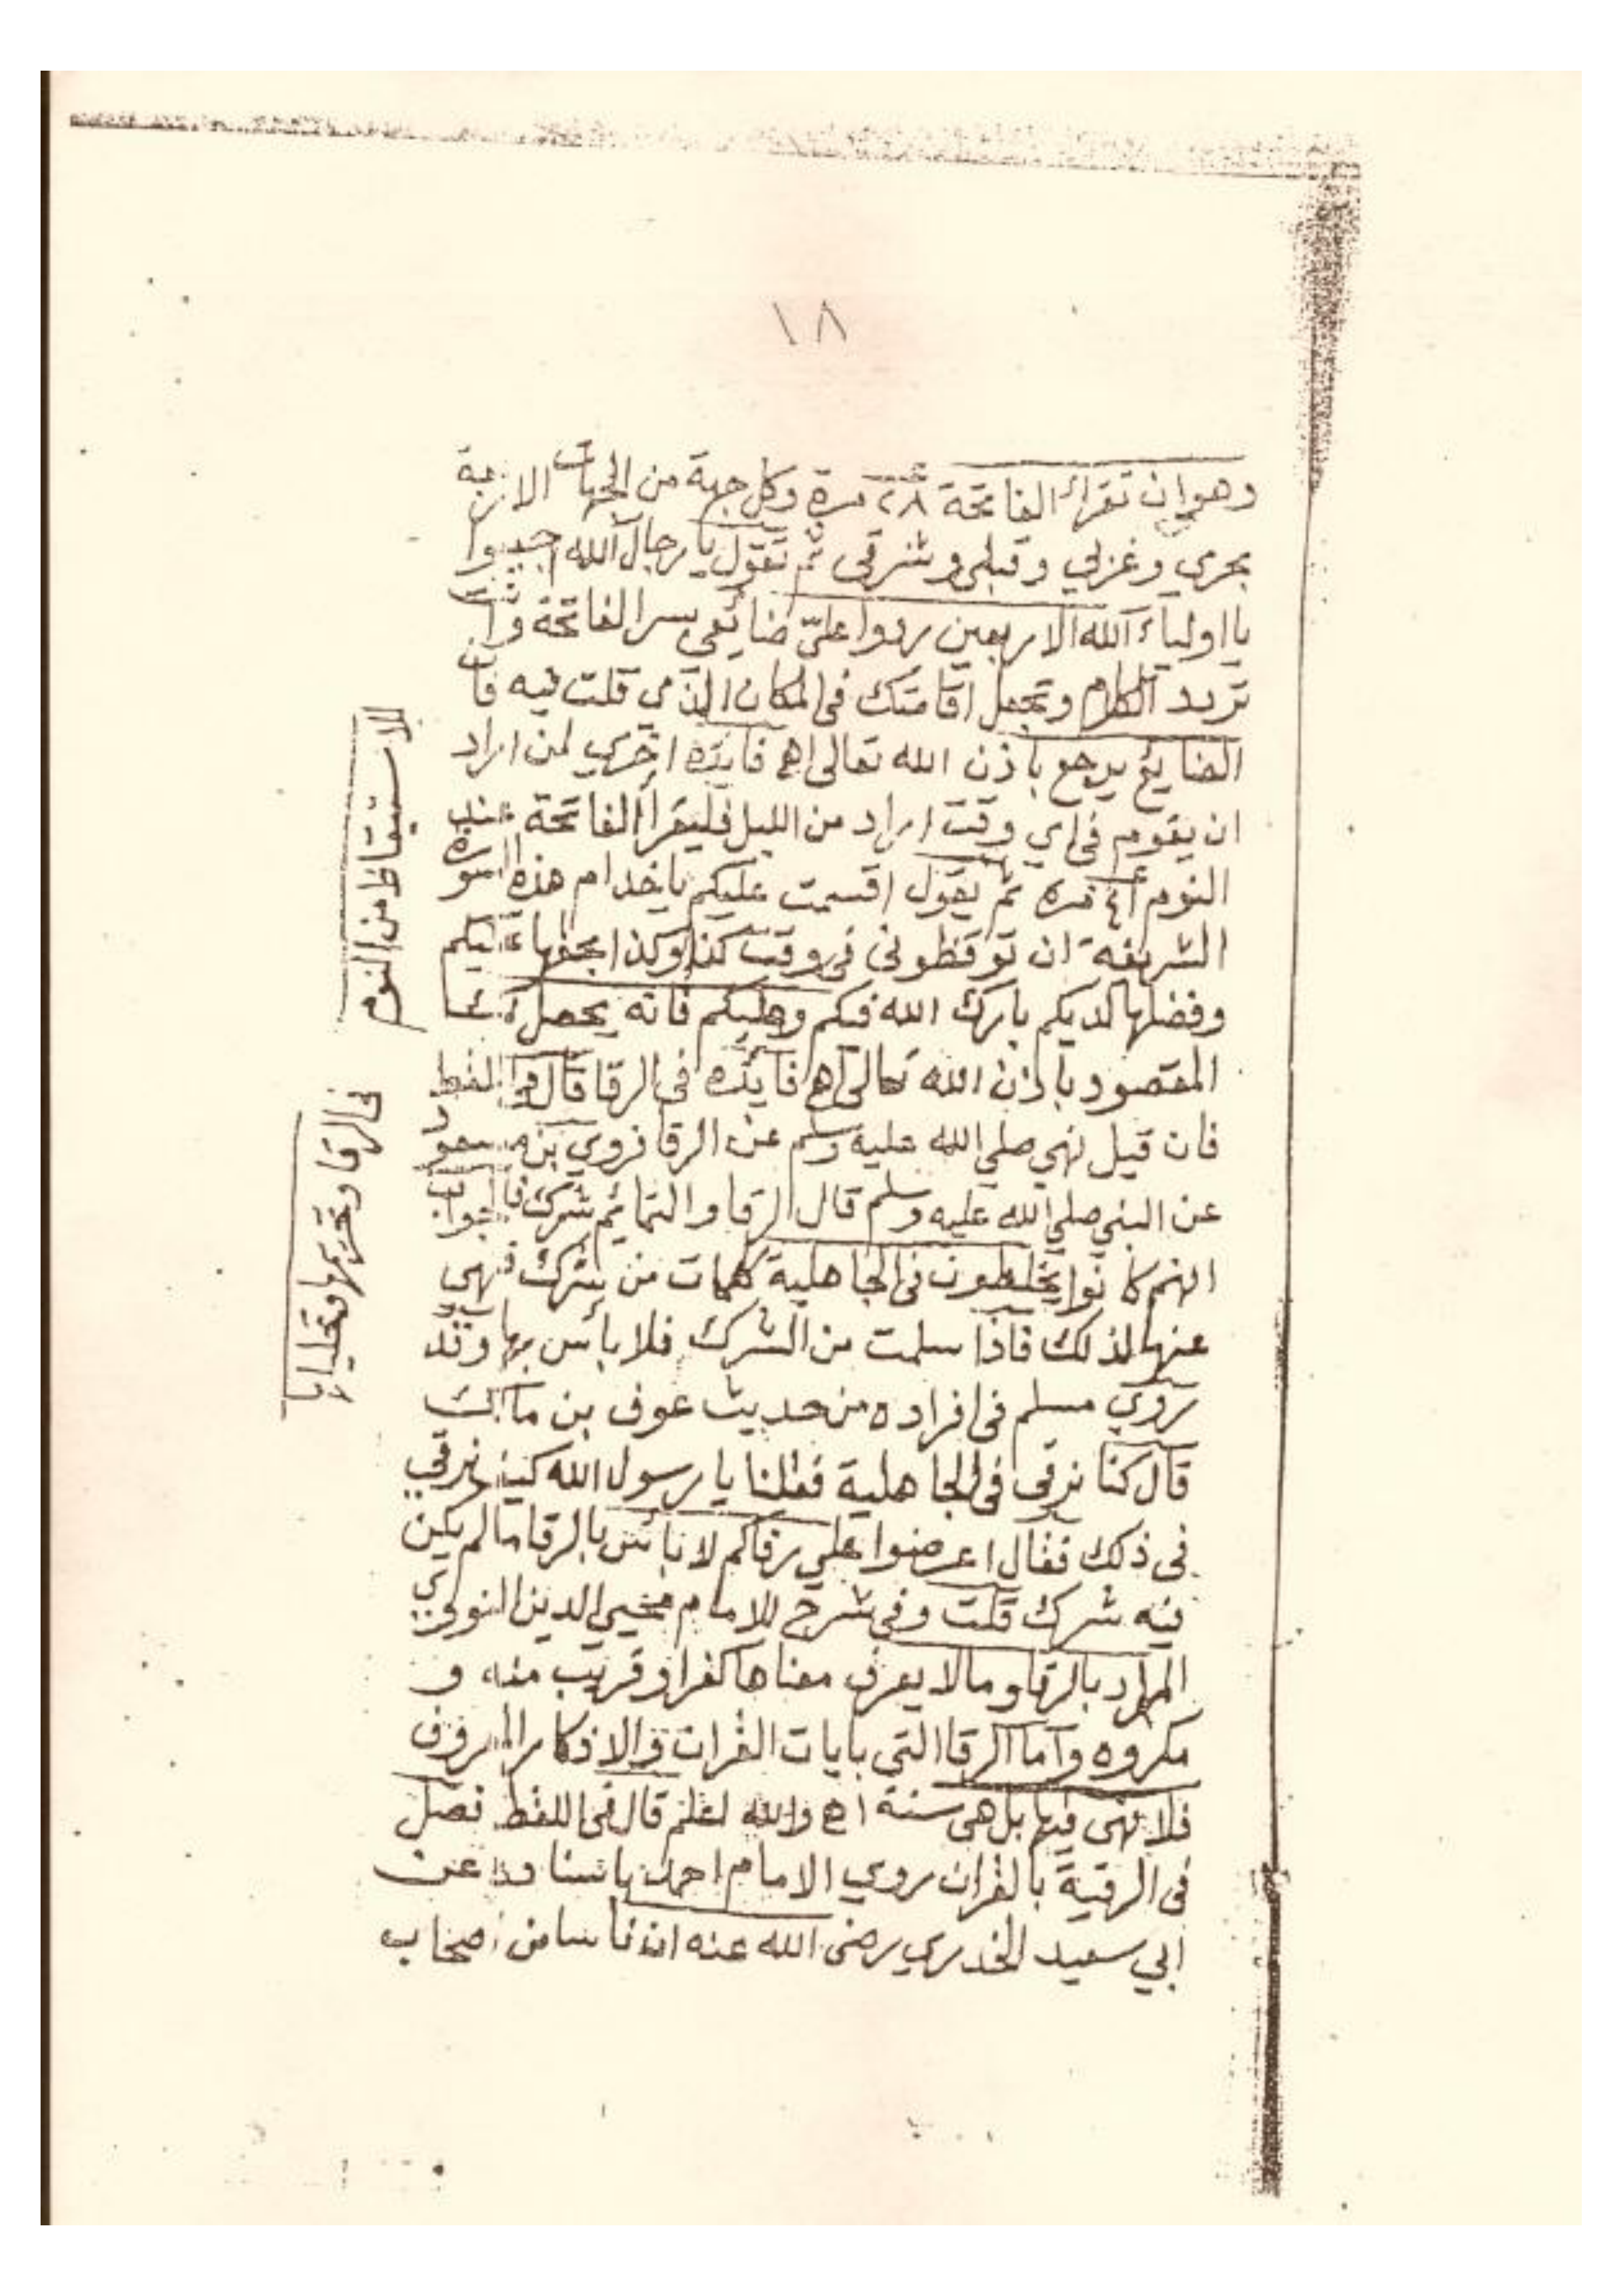 ١٨
وهو ان تقرأ الفاتحة ٢٨ مرة وكل جهة من الجهات الاربعة
بحري وغربي وقبلي وشرقي ثم تقول يا رجال الله اجيبوا
يا اولياء الله الاربعين ردوا عليّ ضائعي بسر الفاتحة وانت
تريد الكلام وتجعل اقامتك في المكان الذي قلت فيه فان
الضايع يرجع باذن الله تعالى اهـ فايده اخري لمن اراد
ان يقوم في اي وقت اراد من الليل فليقرأ الفاتحة عند
النوم مره ثم يقول اقسمت عليكم ياخدام هذه السورة
الشريفة ان توقظوني في وقت كذا وكذا بحقها عليكم
وفضلها لديكم بارك الله فيكم وعليكم فانه يحصل
المقصود باذن الله تعالى اهـ فايده في الرقا قال في اللقط
فان قيل نهي صلي الله عليه وسلم عن الرقا فروي بن مسعود
عن النبي صلي الله عليه وسلم قال الرقا والتمائم شرك فالجواب
انهم كانوا يخلطون في الجاهلية كلمات من شرك فنهى
عنها لذلك فاذا سلمت من الشرك فلا بأس بها وقد
روي مسلم في افراده من حديث عوف بن مالك
قال كنا نرقى في الجاهلية فقلنا يا رسول الله كيف نرقي
في ذلك فقال اعرضوا علي رقاكم لا بأس بالرقا مالم يكن
فيه شرك قلت وفي شرح للامام محيي الدين النووي
المراد بالرقا وما لا يعرف معناها كفرا وقريب منه و
مكروه وأما الرقا التي بايات القران والاذكار المعروف
فلا نهى فيها بل هي سنة اهـ والله اعلم قال في اللقط فصل
في الرقية بالقران روي الامام احمد باسناده عن
ابي سعيد الخدري رضى الله عنه ان ناسا من اصحاب
للاستيقاظ من النوم
في الرقا وتحريمها وتحليلها